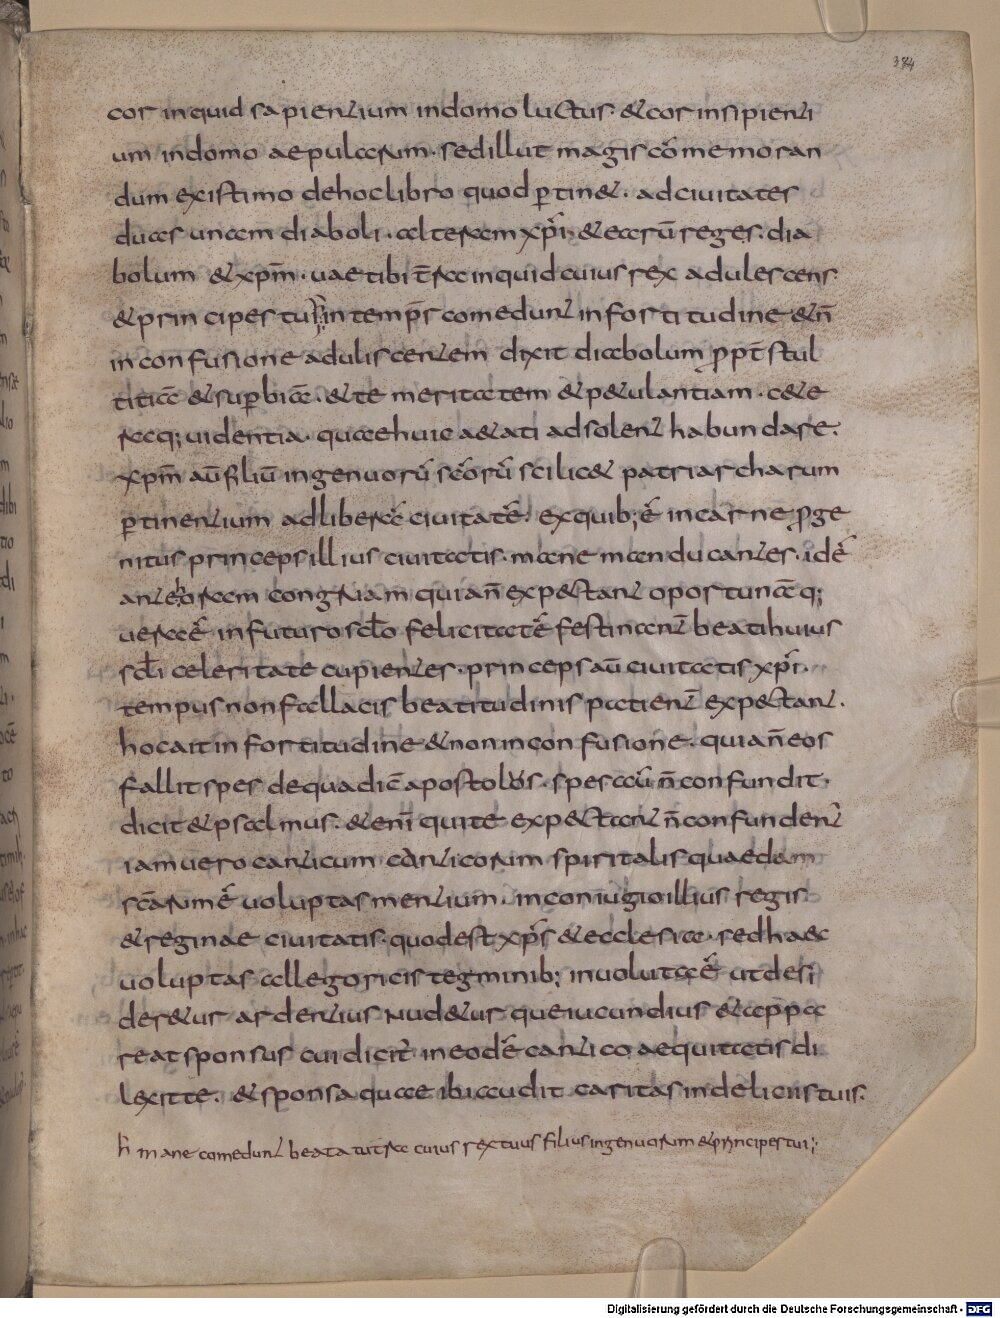 384
cor inquid sapientium indomo luctus. &cor insipienti
um indomo aepularum. sedillut magis cōmemoran
dum existimo dehoclibro quod p̄tin&. adciuitates
duas unam diaboli. alteram xp̄i. &earū reges. dia
bolum &xpm̄. uaetibi t̄ra inquid cuius rex adulescens
&principes tui in temp̄s comedunt in fortitudine &n̄
in confusione aduliscentem dixit diabolum ꝓpt̄ stul
titiā &sup̄biā. &te meritatem &p&ulantiam. c&e
raq; uidentia. quae huic a&ati adsolent habundare.
xpm̄ aū filiū ingenuorū sc̄orū scilic& patriarcharum
p̄tinentium adliberā ciuitatē. exquib; ē incarne ꝓge
nitus princeps illius ciuitatis. mane manducantes. idē
ante horam congruam quia n̄ expectant oportunā q;
uera ē in futuro sclo felicitatē festinant beatihuius
scli celeritate cupientes. princeps aū ciuitatis xp̄i.
tempus non fallacis beatitudinis patient̄ expectant.
hoc ait in fortitudine &non in confusione. quia n̄ eos
fallit spes dequa dic̄ apostolus. spes aū n̄ confundit.
dicit &psalmus. &eni quite expectant n̄ confundent̄
iam uero canticum canticorum spiritalis quaedam
sc̄arum ē uoluptas mentium. in coniugio illius regis
&reginae ciuitatis. quodest xp̄s &ecclesia. sed haec
uoluptas allegoricis tegminib; inuoluta ē ut desi
der&ur ardentius nud&ur que iucundius &appa
reat sponsus cui dicit̄ in eodē cantico aequitatis di
lexit te. &sponsa quae ibi audit caritas in deliciis tuis.
h mane comedunt beata tu t̄ra cuius rex tuus filius ingenuorum &principes tui;
Digitalisierung gefördert durch die Deutsche Forschungsgemeinschaft - DFG